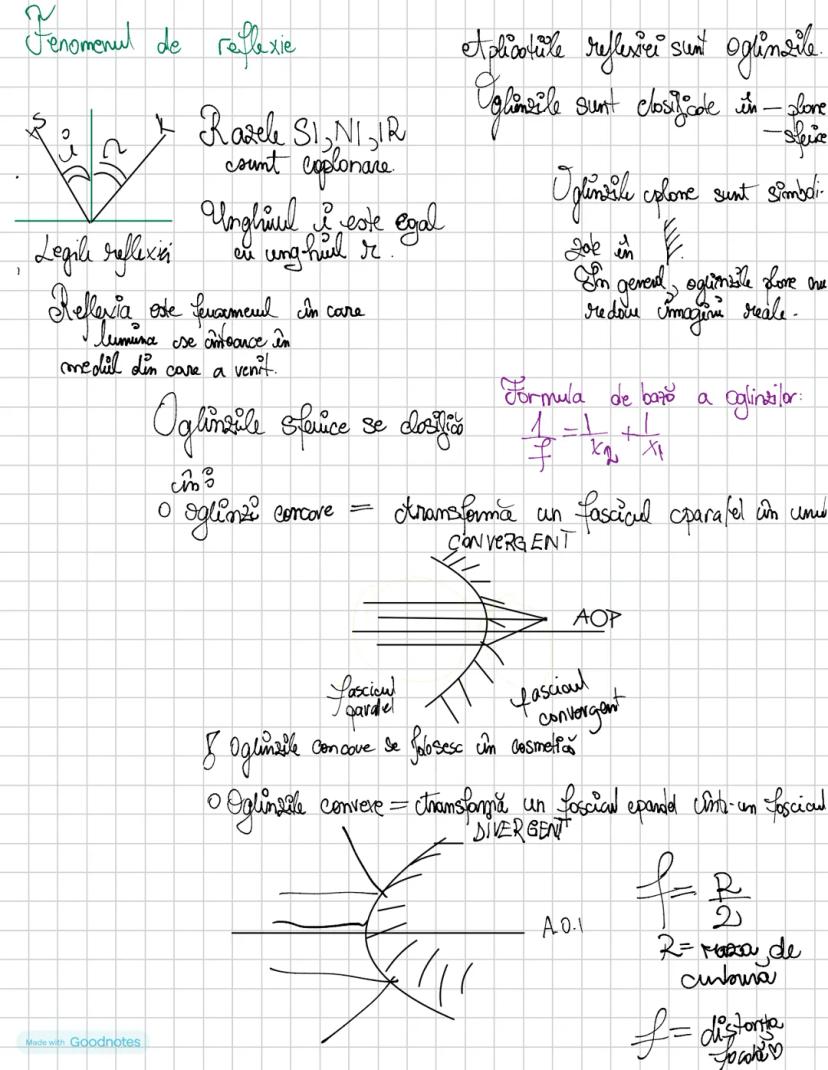 Fenomenul de reflexie
S
i
r
R
Razele SI, NI, IR
sunt coplanare.
Unghiul i este egal
cu unghiul r.
Legile reflexiei
Reflexia este fenomenul în care
lumina se întoarce în
mediul din care a venit.
Aplicațiile reflexiei sunt oglinzile.
Oglinzile sunt clasificate în — plane
— sferice
Oglinzile plane sunt simboli-
zate în
În general, oglinzile plane nu
redau imagini reale.
Formula de bază a oglinzilor:
1/f = 1/x2 + 1/x1
Oglinzile sferice se clasifică
în:
o oglinzi concave = transformă un fascicul paralel în unul
CONVERGENT
AOP
fascicul
paralel
fascicul
convergent
Oglinzile concave se folosesc în cosmetică
o Oglinzile convexe = transformă un fascicul paralel într-un fascicul
DIVERGENT
A.O.P
f = R/2
R = raza de
curbură
f = distanța
focală♡
Made with Goodnotes